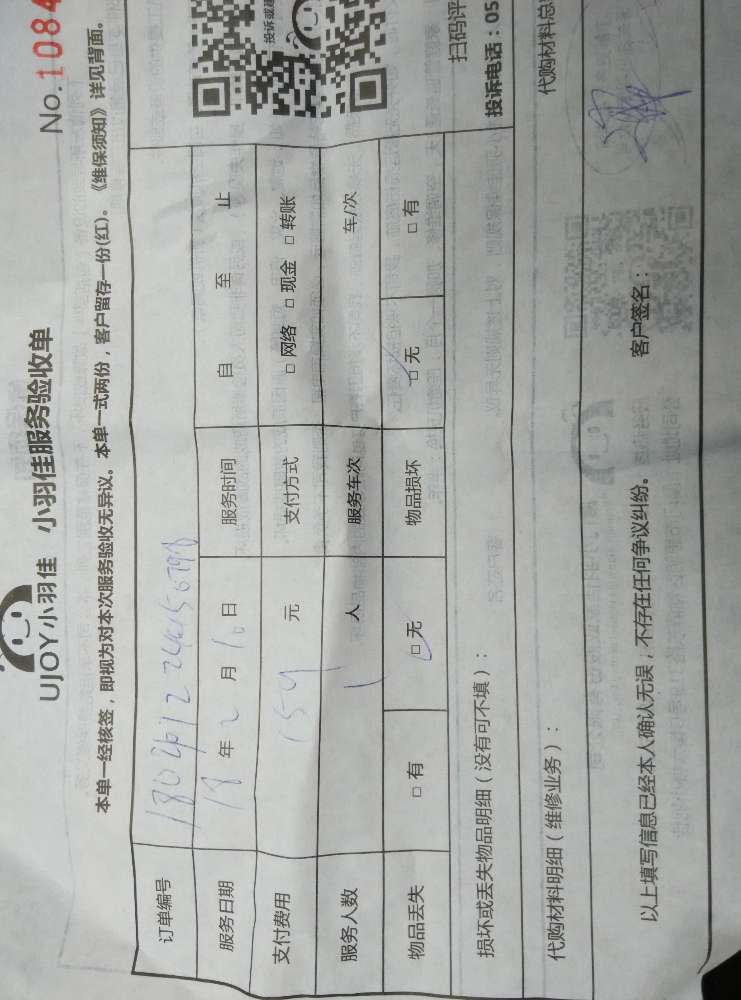 No.1084
UJOY小羽佳 小羽佳服务验收单
本单一经核签，即视为对本次服务验收无异议。本单一式两份，客户留存一份(红)。《维保须知》详见背面。
订单编号
服务日期 18 年 2 月 10 日 服务时间 自 至 止
支付费用 159 元 支付方式 □ 网络 □ 现金 □ 转账
服务人数 1 人 服务车次 车/次
物品丢失 □ 有 □ 无 物品损坏 □ 无 □ 有
损坏或丢失物品明细（没有可不填）：
代购材料明细（维修业务）：
代购材料总
投诉或建
扫码评
投诉电话：05
以上填写信息已经本人确认无误，不存在任何争议纠纷。 客户签名：